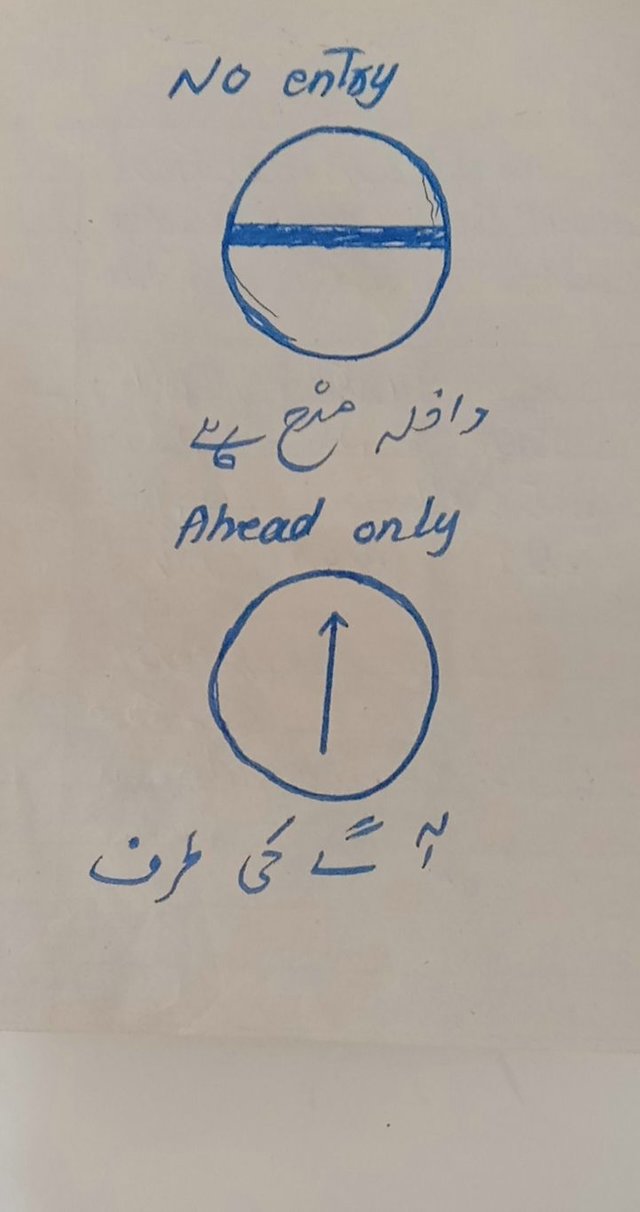 No entry
داخلہ منع ہے
Ahead only
آگے کی طرف